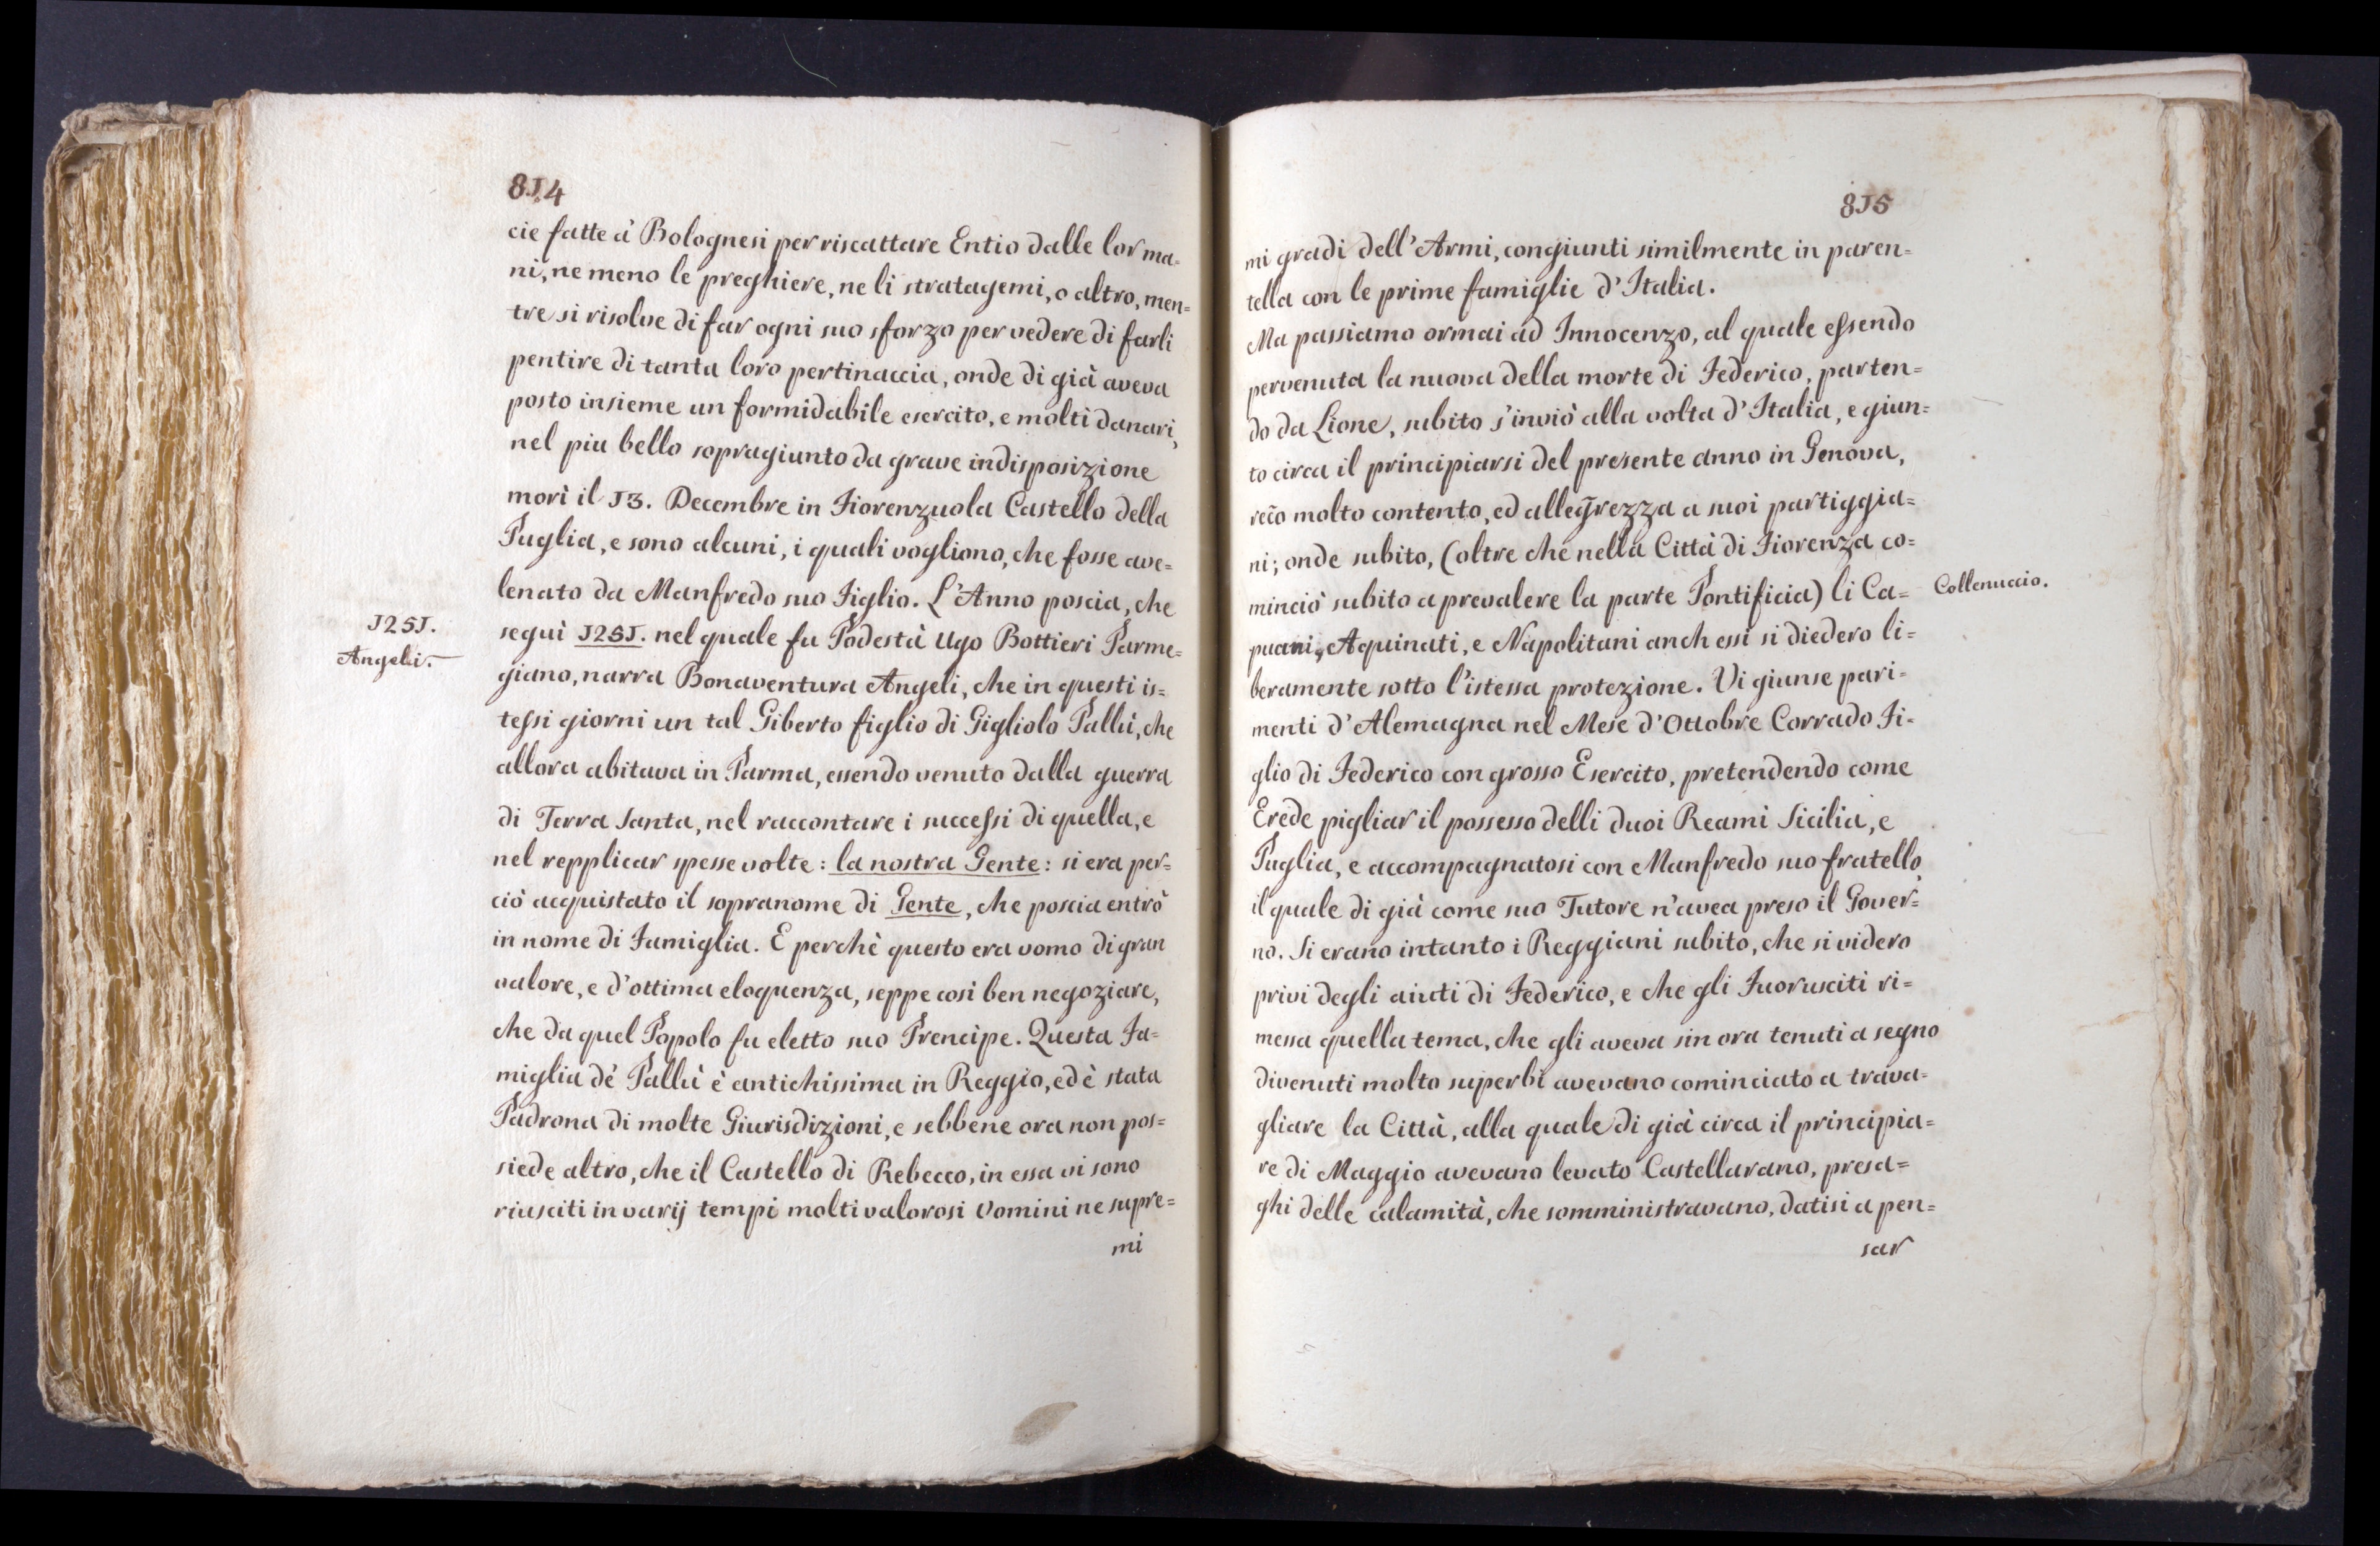 814
cie fatte à Bolognesi per riscattare Entio dalle lor ma=
ni, ne meno le preghiere, ne li stratagemi, o altro, men=
tre si risolve di far ogni suo sforzo per vedere di farli
pentire di tanta loro pertinaccia, onde di già aveva
posto insieme un formidabile esercito, e molti danari,
nel piu bello sopragiunto da grave indisposizione
morì il 13. Decembre in Fiorenzuola Castello della
Puglia, e sono alcuni, i quali vogliono, che fosse ave=
lenato da Manfredo suo Figlio. L'Anno poscia, che
1251.
seguì 1251. nel quale fu Podestà Ugo Bottieri Parme=
Angeli.
giano, narra Bonaventura Angeli, che in questi is=
tessi giorni un tal Giberto figlio di Gigliolo Pallù, che
allora abitava in Parma, essendo venuto dalla guerra
di Terra Santa, nel raccontare i successi di quella, e
nel repplicar spesse volte: la nostra Gente: si era per=
ciò acquistato il sopranome di Gente, che poscia entrò
in nome di Famiglia. E perchè questo era uomo di gran
valore, e d'ottima eloquenza, seppe così ben negoziare,
che da quel Popolo fu eletto suo Prencipe. Questa Fa=
miglia dè Pallù è antichissima in Reggio, ed è stata
Padrona di molte Giurisdizioni, e sebbene ora non pos=
siede altro, che il Castello di Rebecco, in essa vi sono
riusciti in varij tempi molti valorosi Uomini ne supre=
mi
815
mi gradi dell'Armi, congiunti similmente in paren=
tella con le prime famiglie d'Italia.
Ma passiamo ormai ad Innocenzo, al quale essendo
pervenuta la nuova della morte di Federico, parten=
do da Lione, subito s'inviò alla volta d'Italia, e giun=
to circa il principiarsi del presente anno in Genova,
recò molto contento, ed allegrezza a suoi partiggia=
ni; onde subito, (oltre che nella Città di Fiorenza co=
minciò subito a prevalere la parte Pontificia) li Ca=
Collenuccio.
puani, Aquinati, e Napolitani anch essi si diedero li=
beramente sotto l'istessa protezione. Vi giunse pari=
menti d'Alemagna nel Mese d'Ottobre Corrado Fi=
glio di Federico con grosso Esercito, pretendendo come
Erede pigliar il possesso delli duoi Reami Sicilia, e
Puglia, e accompagnatosi con Manfredo suo fratello,
il quale di già come suo Tutore n'avea preso il Gover=
no. Si erano intanto i Reggiani subito, che si videro
privi degli aiuti di Federico, e che gli Fuorusciti ri=
messa quella tema, che gli aveva sin ora tenuti a segno
divenuti molto superbi avevano cominciato a trava=
gliare la Città, alla quale di già circa il principia=
re di Maggio avevano levato Castellarano, presa=
ghi delle calamità, che somministravano, datisi a pen=
sar